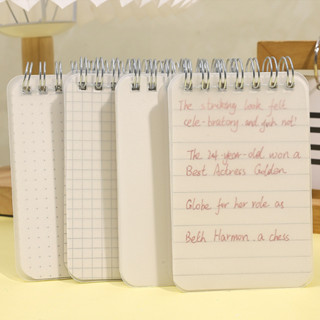 The striking look felt
cele-bratory and
The 24 year-old won a
Best Actress Golden
Globe for her role as
Beth Harmon a chess